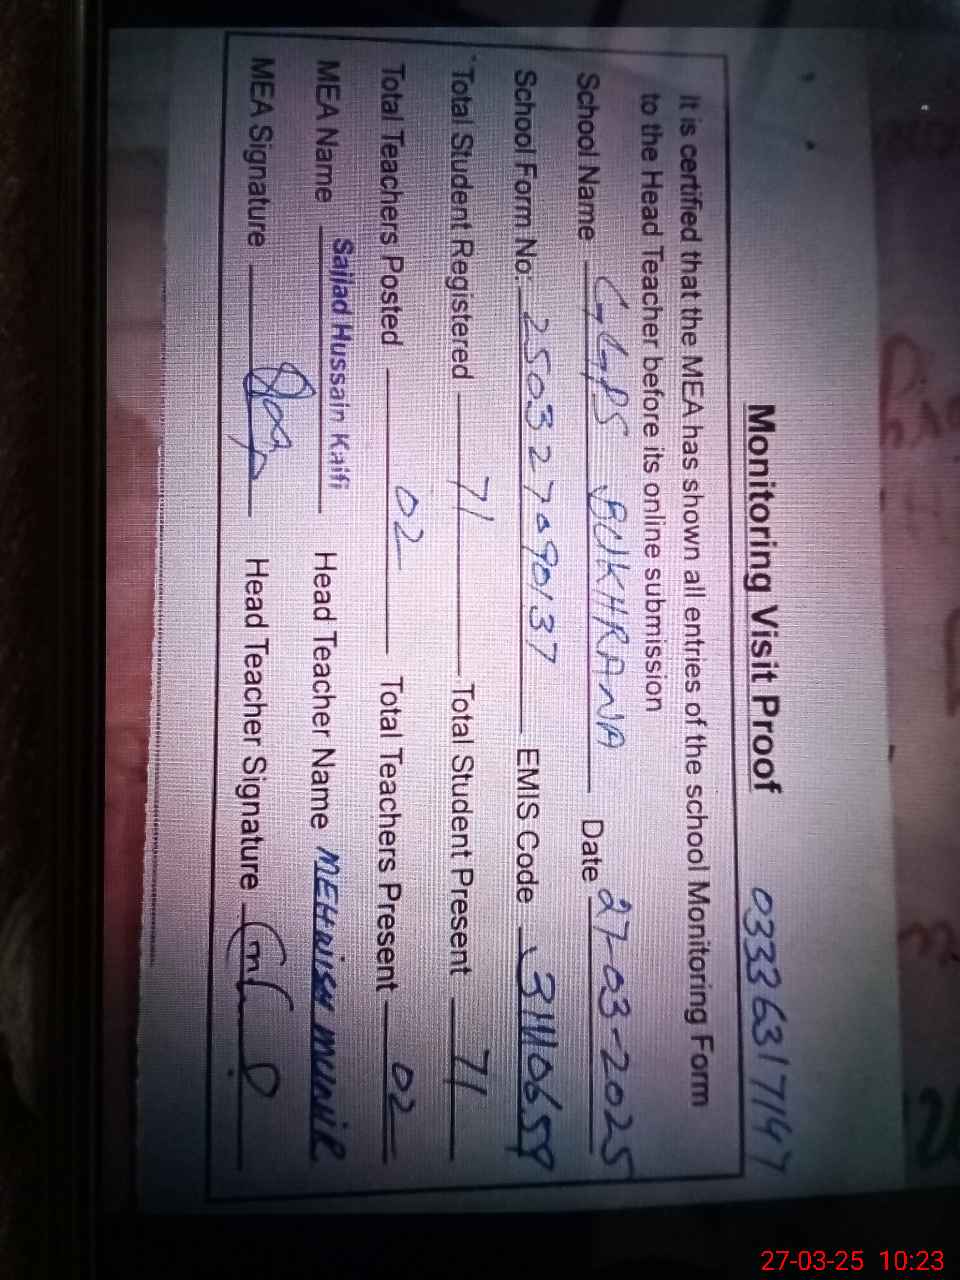 Monitoring Visit Proof 03336317147
It is certified that the MEA has shown all entries of the school Monitoring Form
to the Head Teacher before its online submission
School Name GGPS BUKHRANA Date 27-03-2025
School Form No: 250327090137 EMIS Code 31110659
Total Student Registered 71 Total Student Present 71
Total Teachers Posted 02 Total Teachers Present 02
MEA Name Sajjad Hussain Kaifi Head Teacher Name MEHWISH MUNIR
MEA Signature Head Teacher Signature
27-03-25 10:23